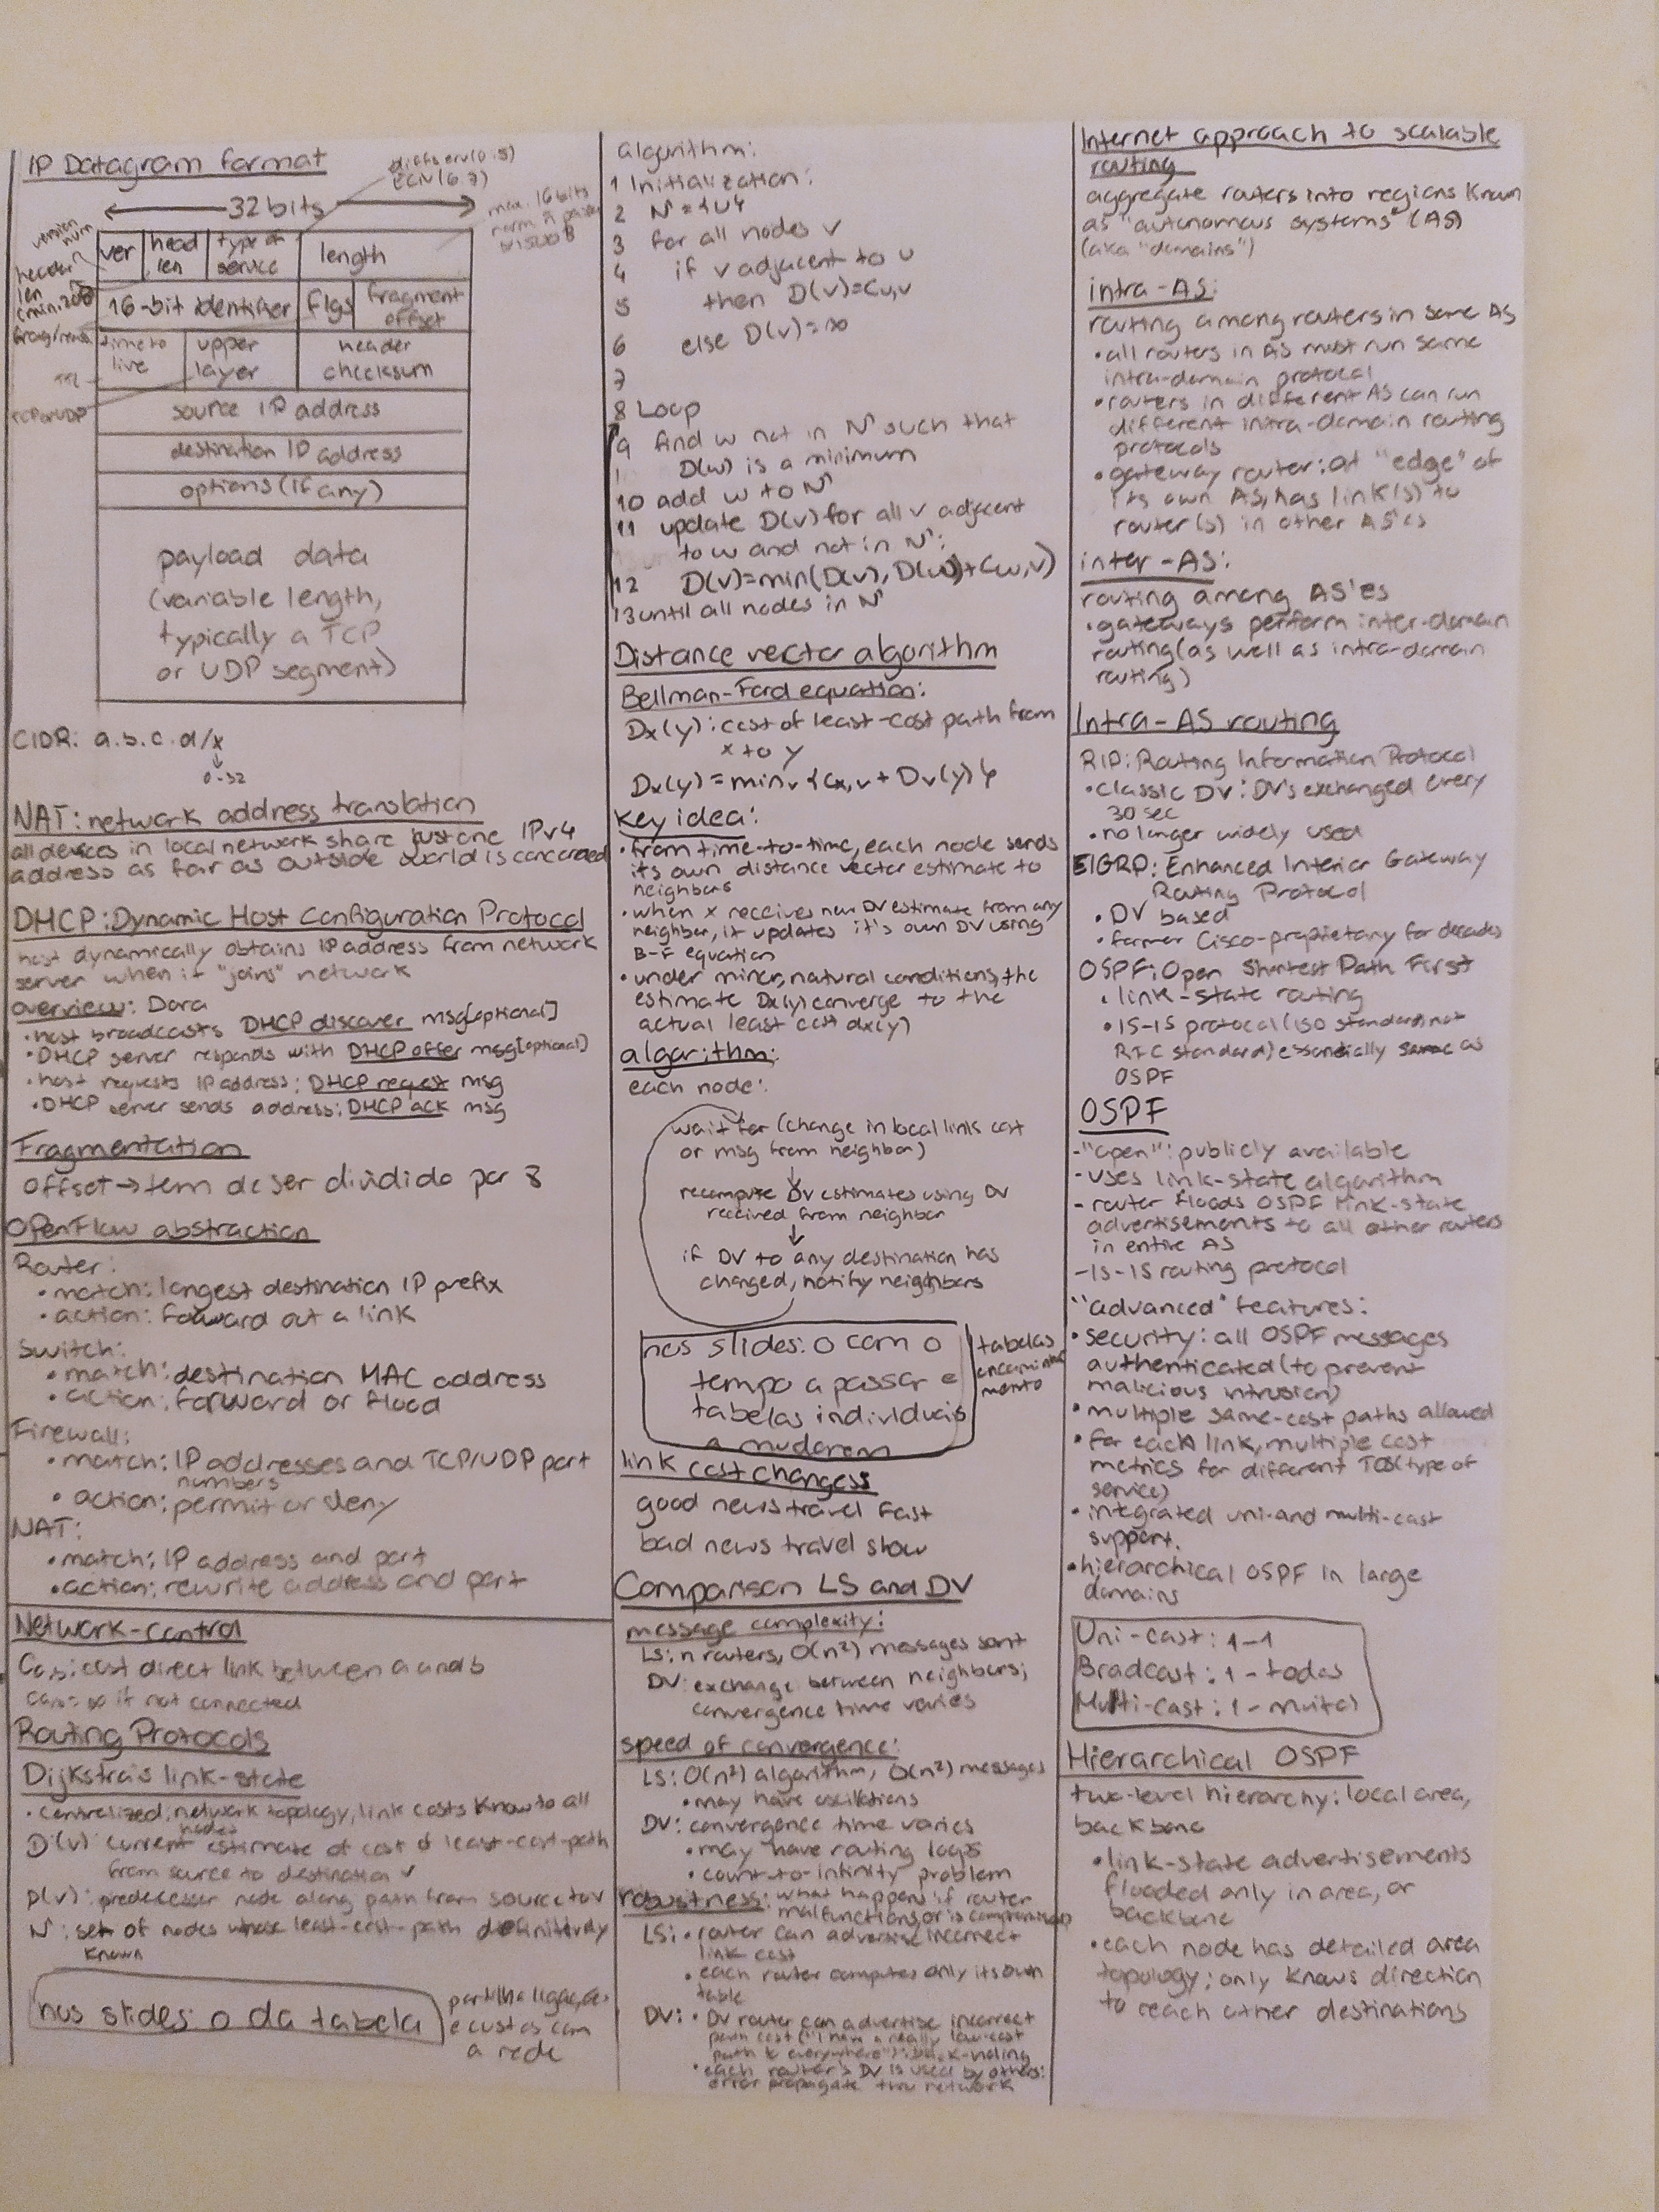 IP Datagram format
diffserv(0:5)
ECN(6:7)
32 bits
max. 16 bits
version
num
ver
head
len
type of
service
length
header
len
16-bit identifier
flgs
fragment
offset
time to
live
upper
layer
header
checksum
TTL
TCP or UDP
source IP address
destination IP address
options (if any)
payload data
(variable length,
typically a TCP
or UDP segment)
CIDR: a.b.c.d/x
↓
0-32
NAT: network address translation
all devices in local network share just one IPv4
address as far as outside world is concerned
DHCP: Dynamic Host Configuration Protocol
host dynamically obtains IP address from network
server when it "joins" network
overview: Dora
• host broadcasts DHCP discover msg[optional]
• DHCP server responds with DHCP offer msg[optional]
• host requests IP address: DHCP request msg
• DHCP server sends address: DHCP ack msg
Fragmentation
offset → tem de ser dividido por 8
OpenFlow abstraction
Router:
• match: longest destination IP prefix
• action: foward out a link
Switch:
• match: destination MAC address
• action: forward or flood
Firewall:
• match: IP addresses and TCP/UDP port
numbers
• action: permit or deny
NAT:
• match: IP address and port
• action: rewrite address and port
Network-control
Ca,b: cost direct link between a and b
Ca,b= ∞ if not connected
Routing Protocols
Dijkstra's link-state
• centralized: network topology, link costs know to all
nodes
D(v): current estimate of cost of least-cost-path
from source to destination v
p(v): predecessor node along path from source to v
N': set of nodes whose least-cost-path definitively
known
nos slides: o da tabela
partilha ligações
e custos com
a rede
algorithm:
1 Initialization:
2 N' = {u}
3 for all nodes v
4 if v adjacent to u
5 then D(v)=Cu,v
6 else D(v)=∞
7
8 Loop
9 find w not in N' such that
D(w) is a minimum
10 add w to N'
11 update D(v) for all v adjacent
to w and not in N':
12 D(v)=min(D(v), D(w)+Cw,v)
13 until all nodes in N'
Distance vector algorithm
Bellman-Ford equation:
Dx(y): cost of least-cost path from
x to y
Dx(y) = minv{Cx,v + Dv(y)}
key idea:
• from time-to-time, each node sends
its own distance vector estimate to
neighbors
• when x receives new DV estimate from any
neighbor, it updates it's own DV using
B-F equation
• under minor, natural conditions, the
estimate Dx(y) converge to the
actual least cost dx(y)
algorithm:
each node:
wait for (change in local links cost
or msg from neighbor)
↓
recompute DV estimates using DV
received from neighbor
↓
if DV to any destination has
changed, notify neighbors
nos slides: o com o
tempo a passar e
tabelas individuais
a mudarem
tabelas
encaminha
mento
link cost changess
good news travel fast
bad news travel slow
Comparison LS and DV
message complexity:
LS: n routers, O(n²) messages sent
DV: exchange between neighbors;
convergence time varies
speed of convergence:
LS: O(n²) algorithm, O(n²) messages
• may have oscillations
DV: convergence time varies
• may have routing loops
• count-to-infinity problem
robustness: what happens if router
malfunctions, or is compromised
LS: • router can advertise incorrect
link cost
• each router computes only its own
table
DV: • DV router can advertise incorrect
path cost ("I have a really low-cost
path to everywhere"): black-holing
• each router's DV is used by others:
error propagate thru network
Internet approach to scalable
routing
aggregate routers into regions known
as "autonomous systems" (AS)
(aka "domains")
intra-AS:
routing among routers in same AS
• all routers in AS must run same
intra-domain protocol
• routers in different AS can run
different intra-domain routing
protocols
• gateway router: at "edge" of
its own AS, has link(s) to
router(s) in other AS'es
inter-AS:
routing among AS'es
• gateways perform inter-domain
routing (as well as intra-domain
routing)
Intra-AS routing
RIP: Routing Information Protocol
• classic DV: DV's exchanged every
30 sec
• no longer widely used
EIGRP: Enhanced Interior Gateway
Routing Protocol
• DV based
• former Cisco-proprietary for decades
OSPF: Open Shortest Path First
• link-state routing
• IS-IS protocol (ISO standard, not
RFC standard) essentially same as
OSPF
OSPF
- "open": publicly available
- uses link-state algorithm
- router floods OSPF link-state
advertisements to all other routers
in entire AS
- IS-IS routing protocol
"advanced" features:
• security: all OSPF messages
authenticated (to prevent
malicious intrusion)
• multiple same-cost paths allowed
• for each link, multiple cost
metrics for different TOS (type of
service)
• integrated uni-and multi-cast
support.
• hierarchical OSPF in large
domains
Uni-cast: 1-1
Bradcast: 1 - todos
Multi-cast: 1 -
Hierarchical OSPF
two-level hierarchy: local area,
backbone
• link-state advertisements
flooded only in area, or
backbone
• each node has detailed area
topology; only knows direction
to reach other destinations